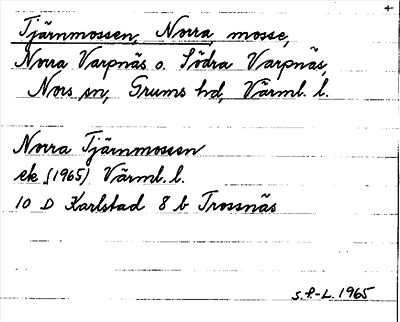 +
Tjärnmossen, Norra, mosse,
Norra Varpnäs o. Södra Varpnäs,
Nors sn, Grums hd, Värml. l.
Norra Tjärnmossen
ek (1965) Värml. l.
10 D Karlstad 8 b Trossnäs
S.F.-L. 1965